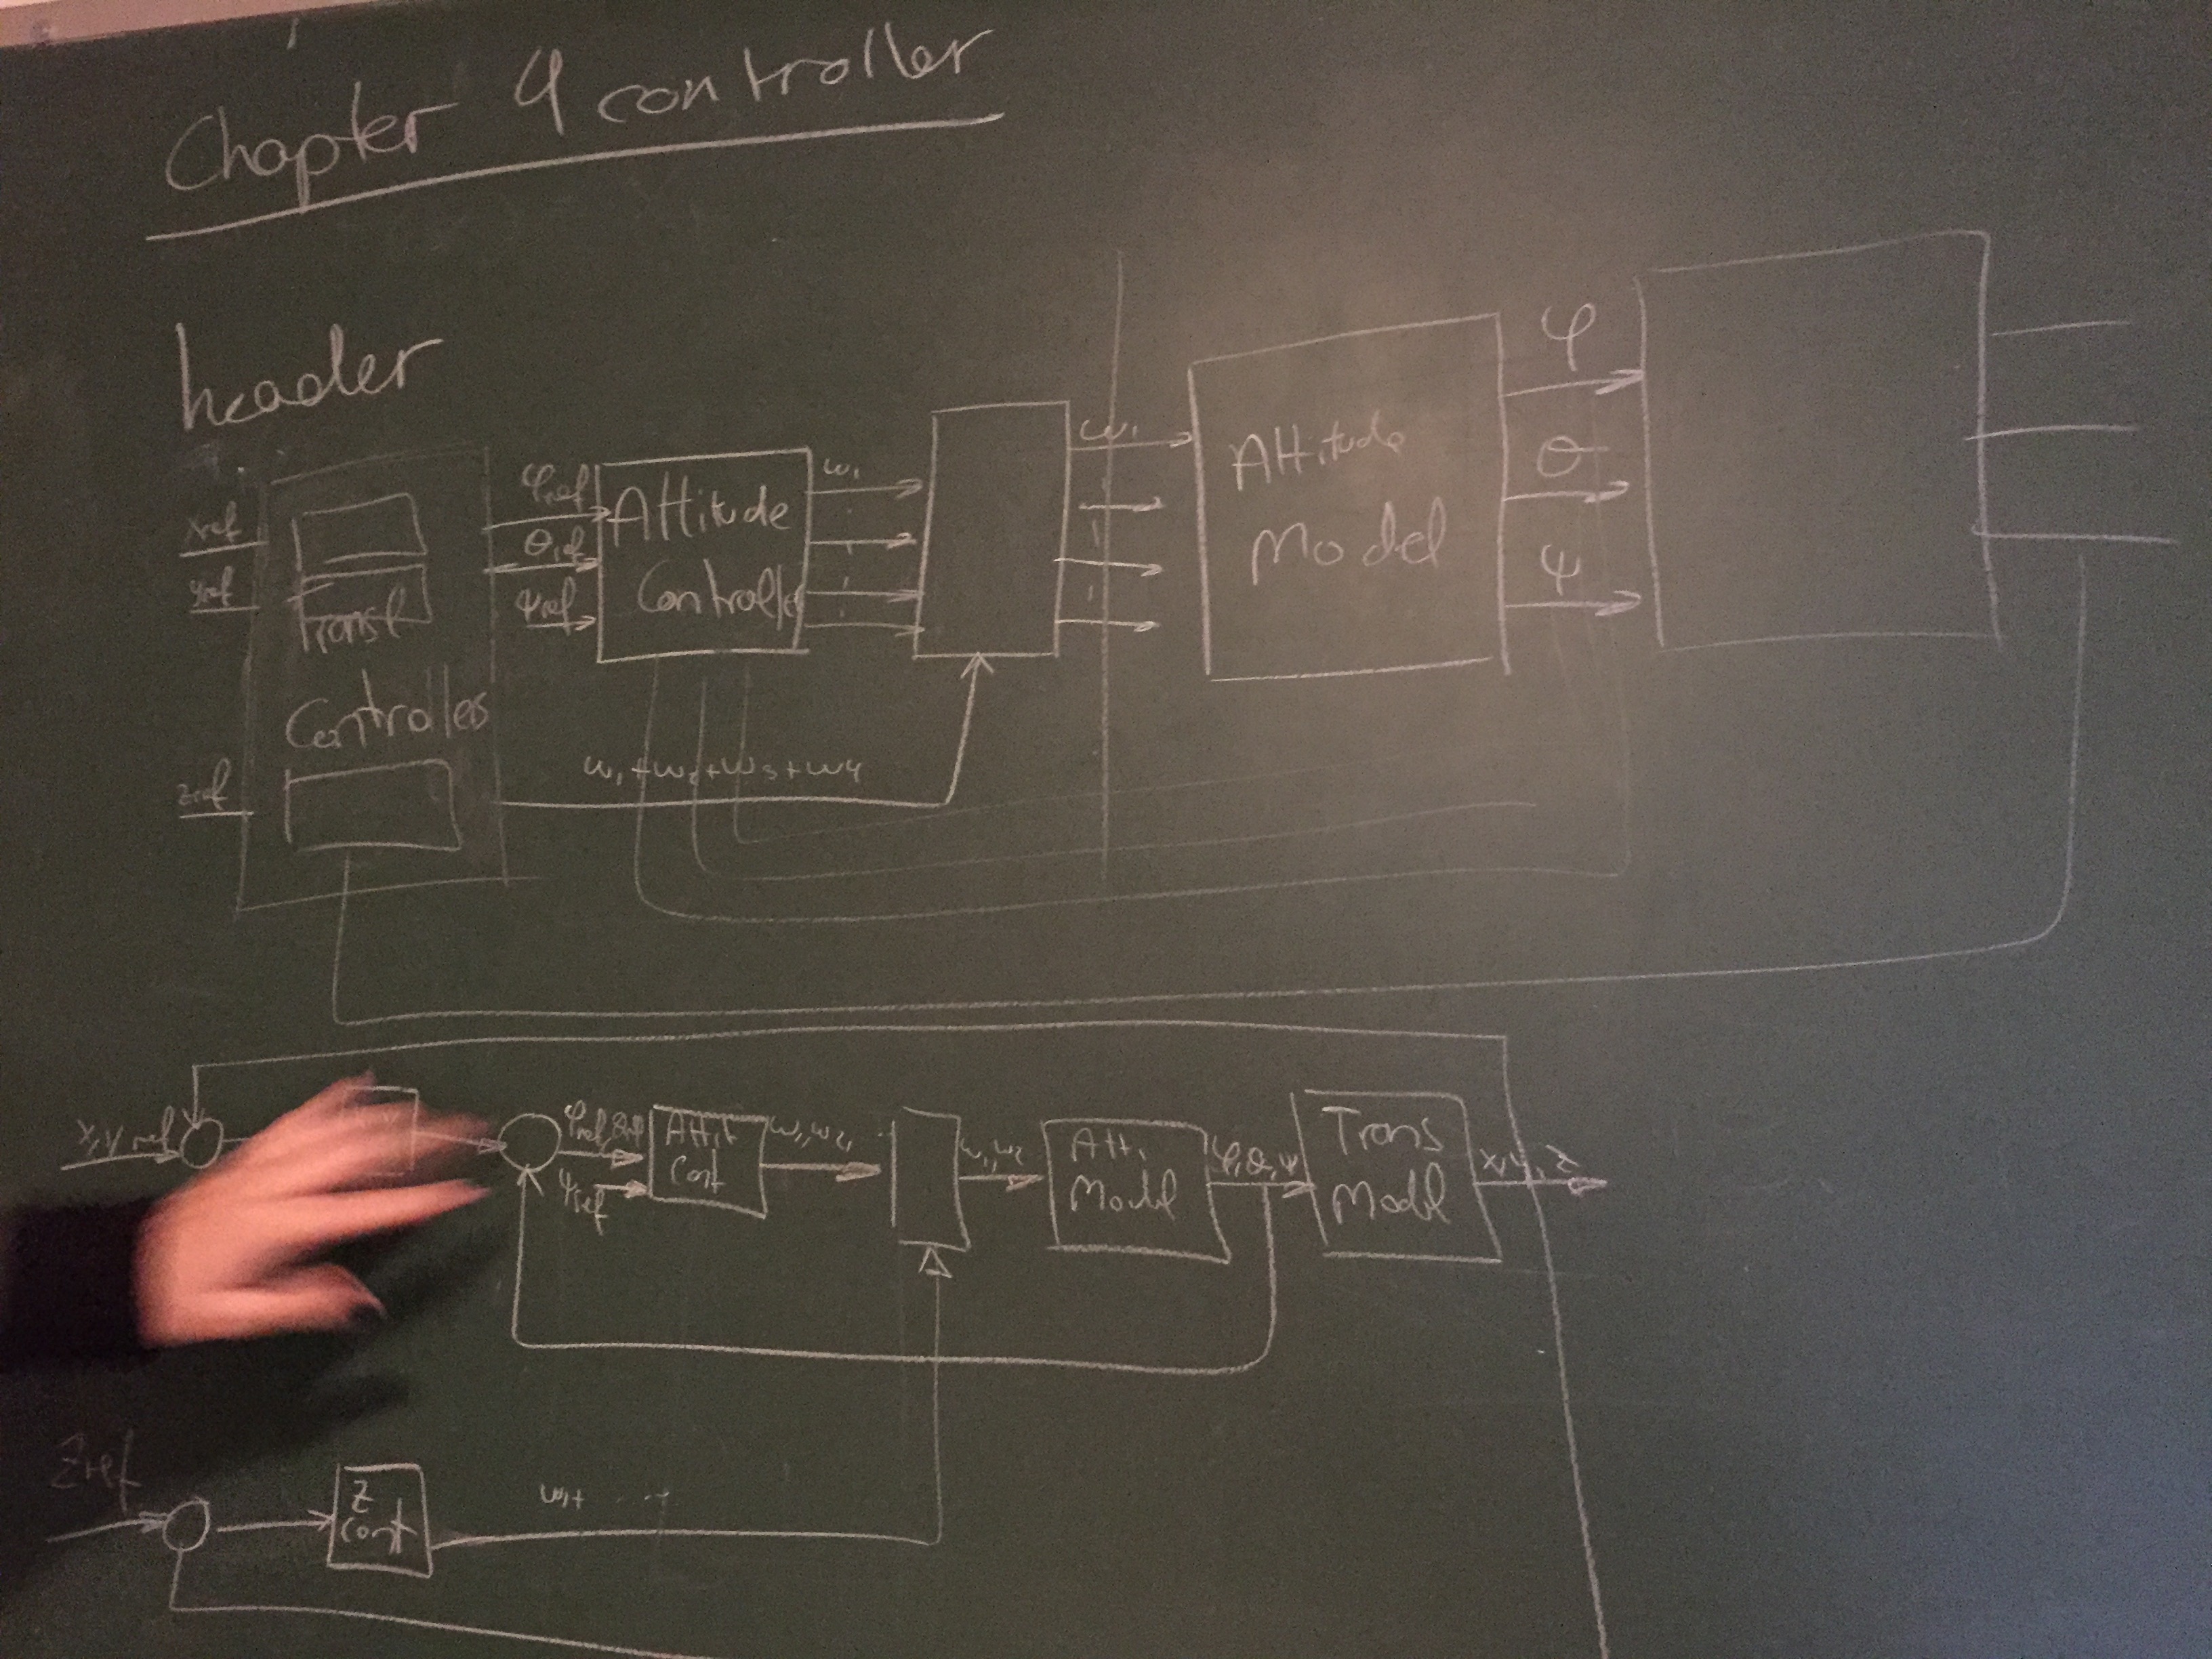 Chapter 4 controller
header
xref
yref
zref
Transl
Controllers
φref
θref
ψref
Attitude
Controller
ω1
ω1+ω2+ω3+ω4
ω1
Attitude
Model
φ
θ
ψ
x,y ref
φref,θref
ψref
Attit
Cont
ω1,ω2,
ω1,ω2
Atti
Model
φ,θ,ψ
Trans
Model
x,y,z
Zref
Z
cont
ω1+ ....